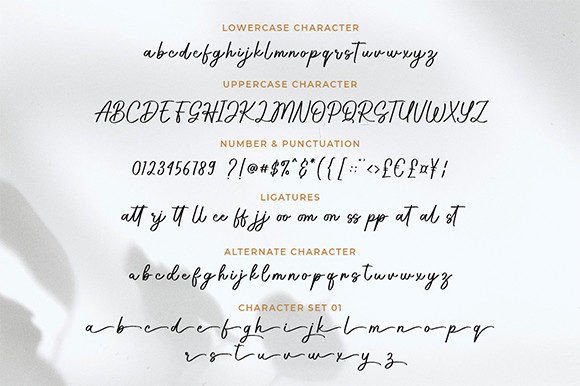 LOWERCASE CHARACTER
abcdefghijklmnopqrstuvwxyz
UPPERCASE CHARACTER
ABCDEFGHIJKLMNOPQRSTUVWXYZ
NUMBER & PUNCTUATION
0123456789 ?!@#$%^&*({[::¨<>£€£¤¥¦
LIGATURES
att rj tt ll ee ff jj oo om on ss pp at al st
ALTERNATE CHARACTER
abcdefghijklmnopqrstuvwxyz
CHARACTER SET 01
a b c d e f g h i j k l m n o p q
r s t u v w x y z